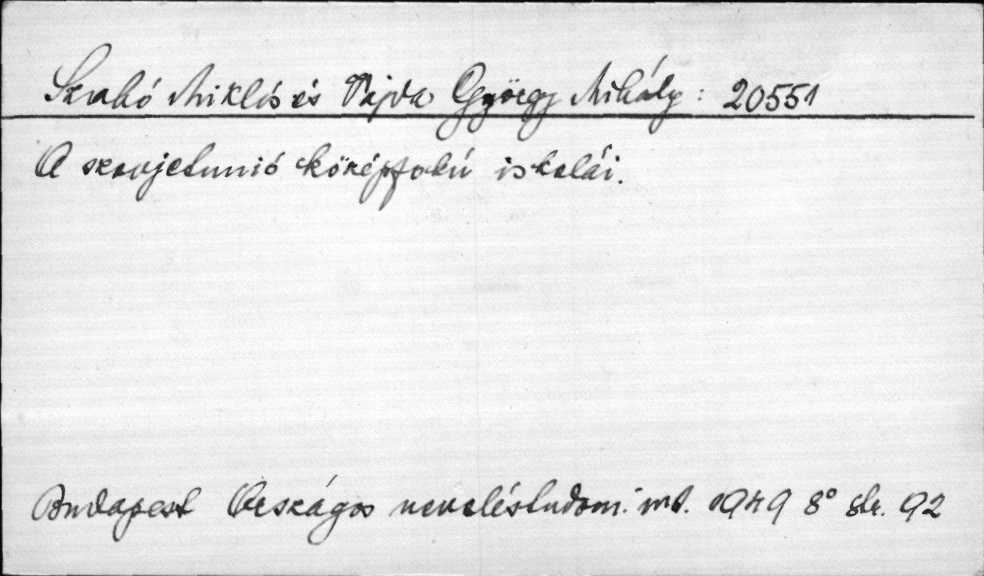 Szabó Miklós és Vajda György Mihály: 20551
A szovjetunió középfokú iskolái.
Budapest Országos neveléstudom. int. 1949 8° str. 92